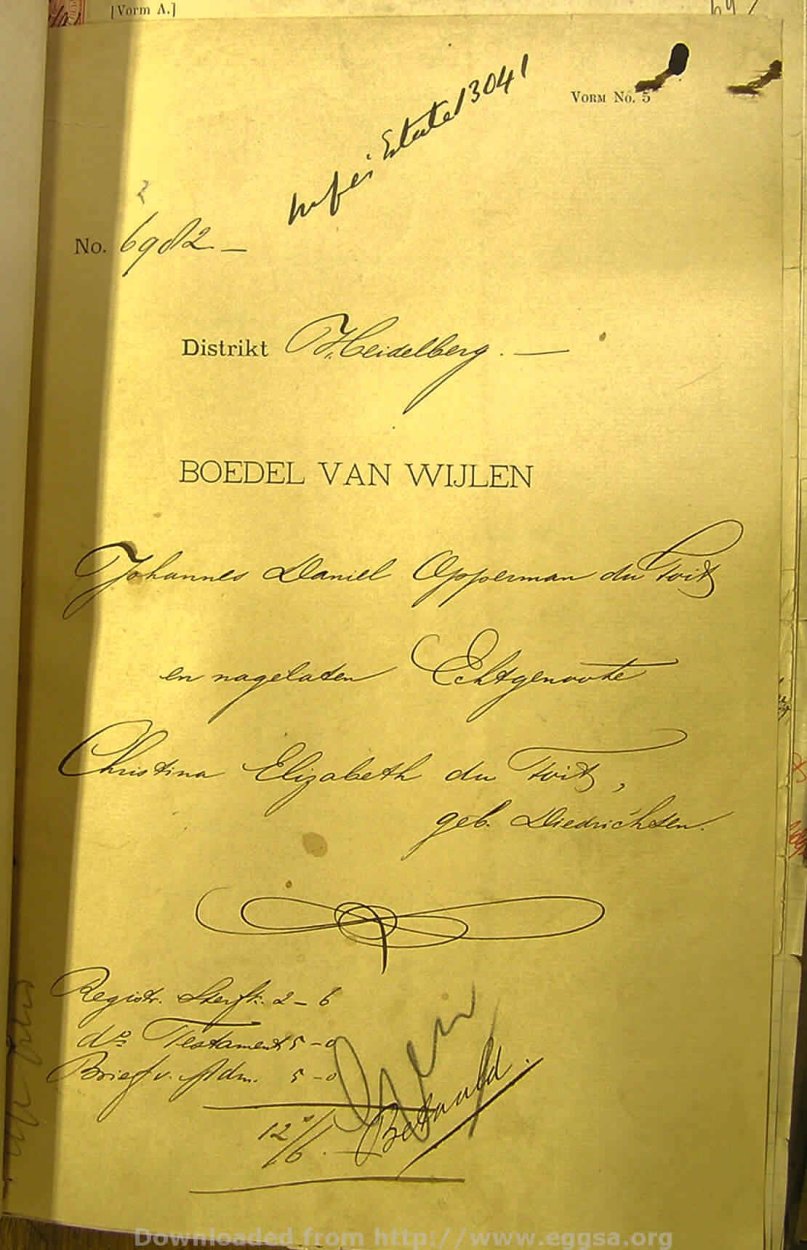 [Vorm A.]
Vorm No. 5
Estate 13041
2
No. 6982 —
Distrikt Heidelberg. —
BOEDEL VAN WIJLEN
Johannes Daniel Opperman du Toit
en nagelaten Echtgenoote
Christina Elizabeth du Toit,
geb. Diedrichsen.
Registr. Sterfk: 2 – 6
do Testament 5 – 0
Brief v. Adm. 5 – 0
12/6. Betaald.
Downloaded from http://www.eggsa.org